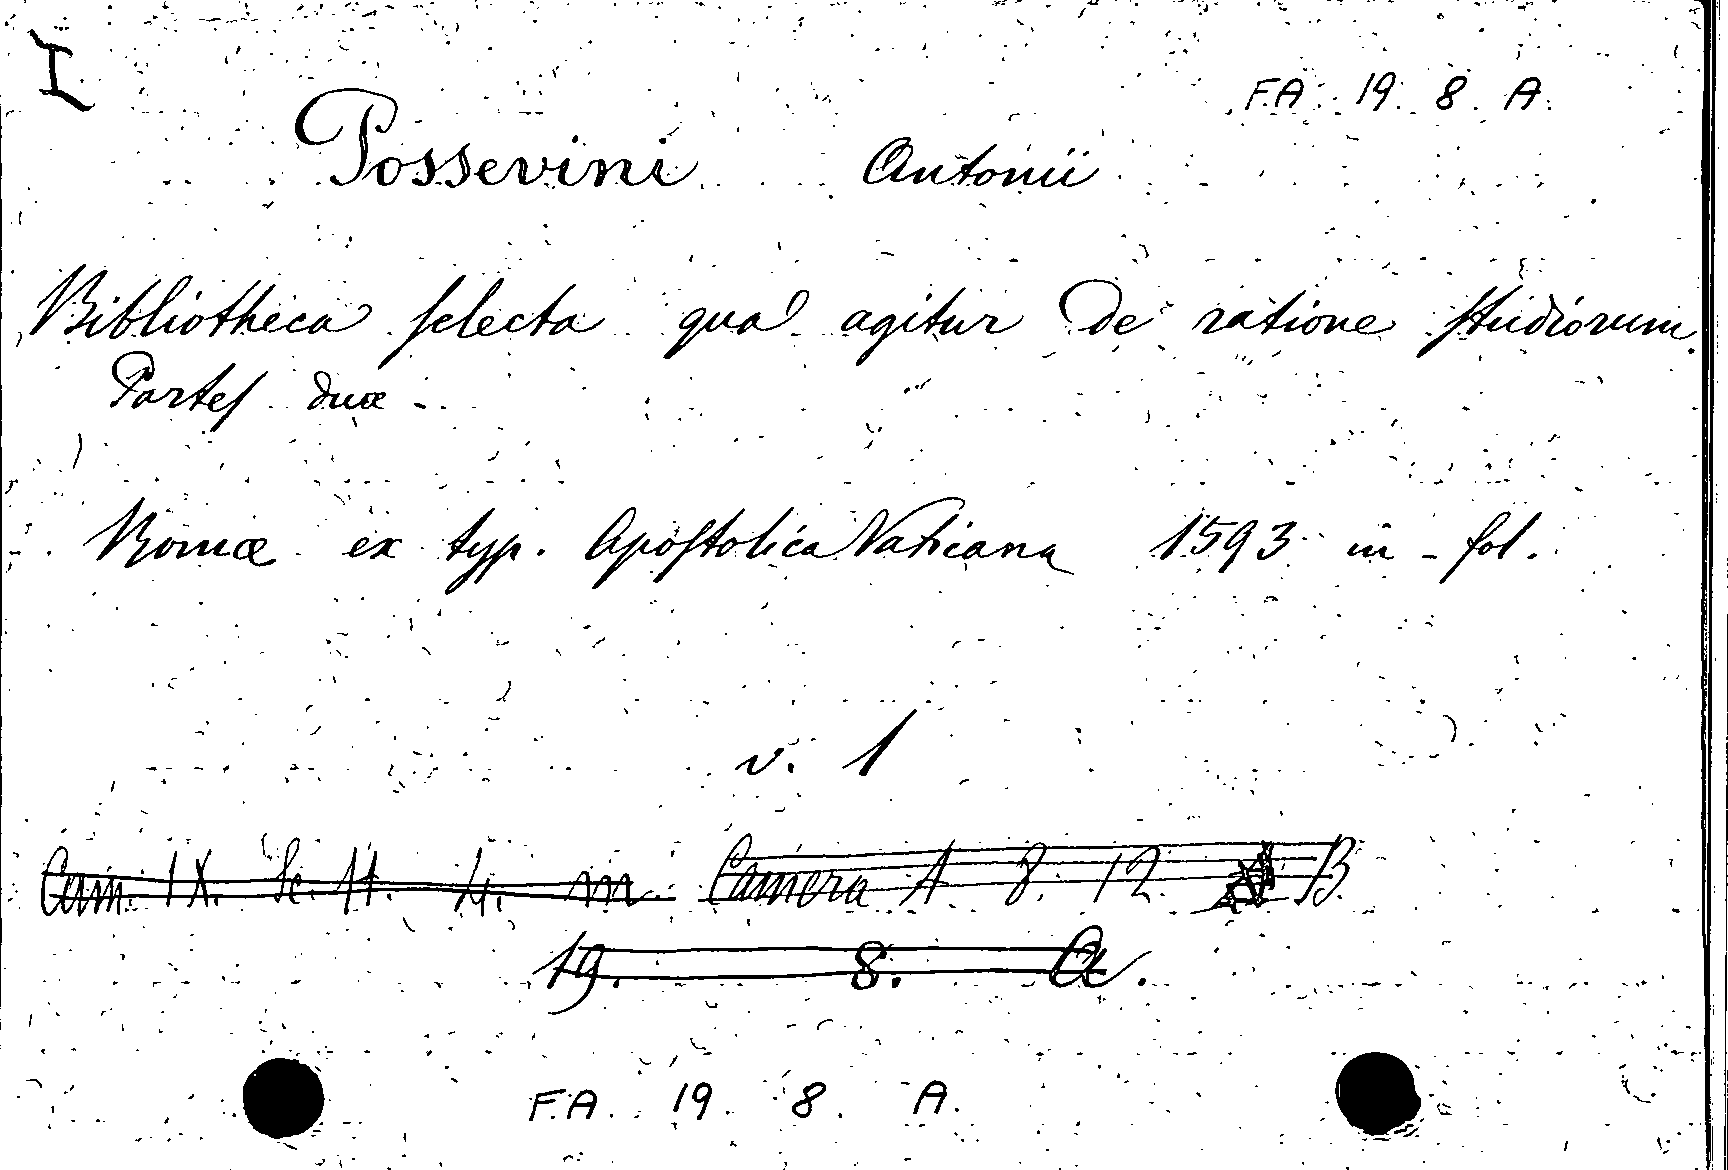 I
F.A. 19. 8. A.
Possevini Antonii
Bibliotheca selecta qua agitur de ratione studiorum.
Partes duæ -
Romæ ex typ. Apostolica Vaticana 1593 in-fol.
v. 1
Cam. IX. Sc. 11. 4. m. Camera A 8. 12. B.
19. 8. A.
F.A. 19. 8. A.